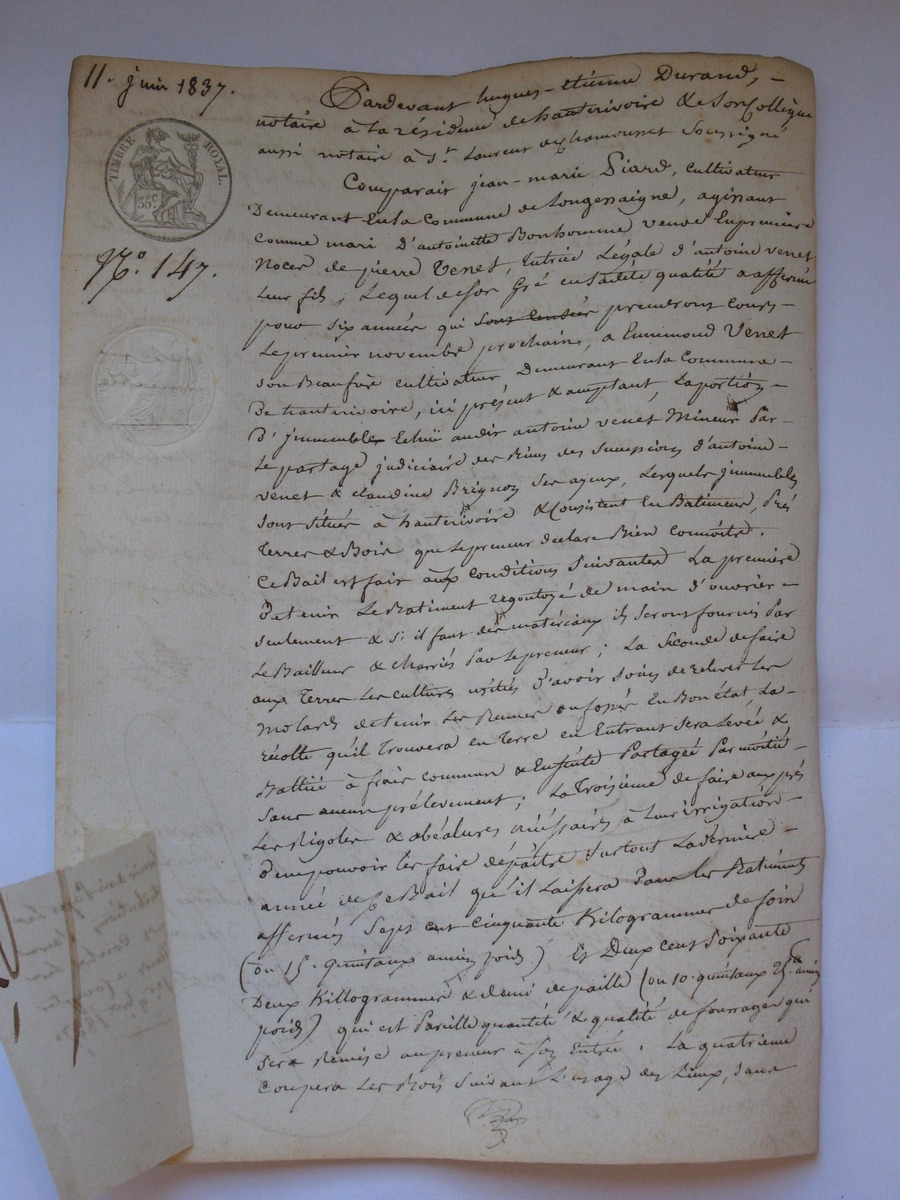 11. juin 1837.
TIMBRE ROYAL.
35c.
N.° 147.
Pardevant hugues-étienne Durand,-
notaire à la résidence de hauterivoire & Son Collègue
aussi notaire à St. Laurent de chamousset Soussigné
Comparait jean-marie Piard, cultivateur
Demeurant En la Commune de Longessaigne, agissant
Comme mari D'antoinette Bonhomme veuve En premiere
Noces de pierre Venet, tutrice Légale d'antoine venet
leur fils; Lequel de son Gré en Sadite qualité a affermé
pour six années qui sont censées prendront Cours-
Le premier novembre prochain, a Ennimond Venet
son Beaufrère cultivateur Demeurant En la Commune-
De hauterivoire, ici présent & acceptant, La portion-
D'jmmeubles Echue audit antoine venet Mineur Par-
Le partage judiciaire des Biens des Successions d'antoine-
venet & claudine Brignon Ses ayeux, Lesquels jmmeubles
Sont situés à hauterivoire & Consistent En Batiments, Prés
Terres & Bois que le preneur declare Bien Connoitre.
Ce Bail est fait aux Conditions Suivantes La premiere
De tenir Le Batiment regoutoyé de main d'ouvrier-
seulement & Si il faut des matériaux ils Seront fournis Par
Le Bailleur & charriés Par Le preneur; La Seconde de faire
aux Terres Les cultures usités D'avoir Soins de relever Les
molards de tenir Les ou fossés En Bon état La-
récolte qu'il Trouvera en Terre en Entrant Sera Levée &
Battue à frais communs & Ensuite Partagée Par moitié-
Sans aucun prélevement; La Troisieme de faire aux prés
Les Rigoles & abéalures nécessaires à Leur irrigation-
D'en pouvoir Les faire dépaître Surtout La derniere-
année de ce Bail qu'il Laissera Dans Les Batiments
affermés Sept cent cinquante Kilogrammes de foin
(ou 15. quintaux ancien poids) Et Deux Cent Soixante
Deux Killogrammes & demi de paille (ou 10. quintaux 25 ancien
poids) qui est Pareille quantité & qualité de fourrages qui
Sera Remise au preneur à Son Entrée. La quatrieme
Coupera Les Bois Suivant L'usage des Lieux, Sans